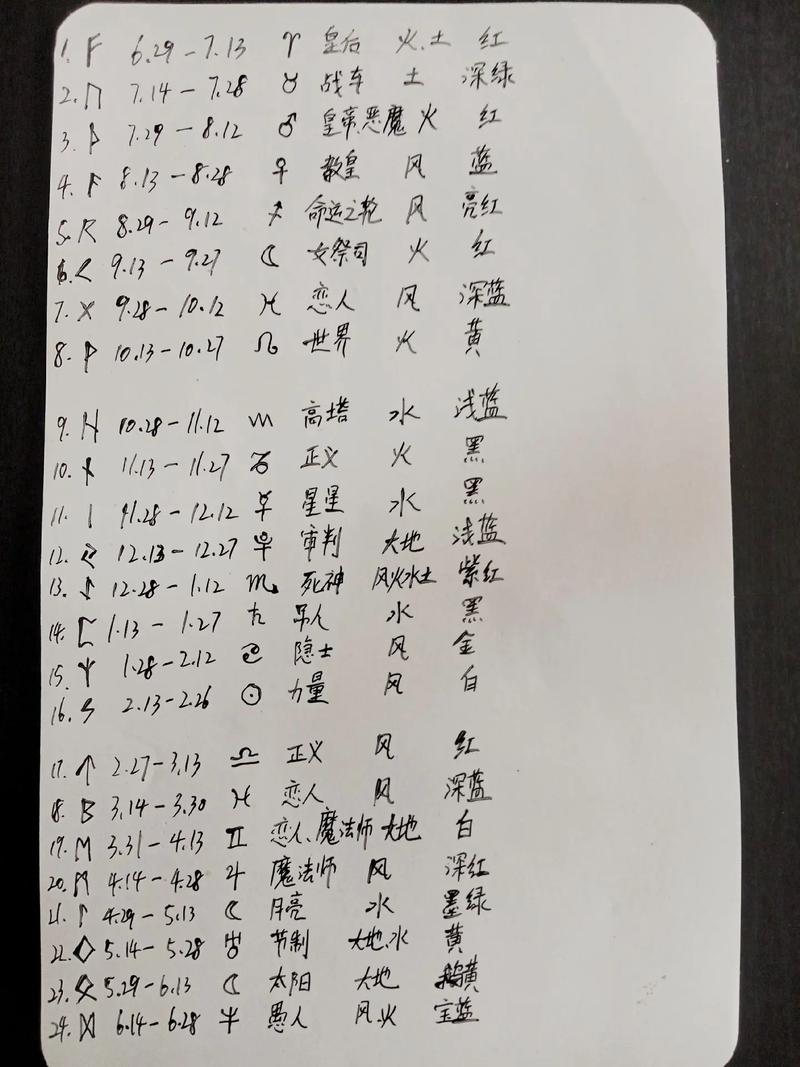 1. ᚠ 6.29 — 7.13 ♈ 皇后 火、土 红
2. ᚢ 7.14 — 7.28 ♉ 战车 土 深绿
3. ᚦ 7.29 — 8.12 ♂ 皇帝、恶魔 火 红
4. ᚨ 8.13 — 8.28 ♀ 教皇 风 蓝
5. ᚱ 8.29 — 9.12 ♐ 命运之轮 风 亮红
6. ᚲ 9.13 — 9.27 ☾ 女祭司 火 红
7. ᚷ 9.28 — 10.12 ♓ 恋人 风 深蓝
8. ᚹ 10.13 — 10.27 ♌ 世界 火 黄
9. ᚺ 10.28 — 11.12 ♒ 高塔 水 浅蓝
10. ᚾ 11.13 — 11.27 ♑ 正义 火 黑
11. ᛁ 11.28 — 12.12 ☿ 星星 水 黑
12. ᛃ 12.13 — 12.27 审判 大地 浅蓝
13. ᛇ 12.28 — 1.12 ♏ 死神 风火水土 紫红
14. ᛈ 1.13 — 1.27 ♄ 吊人 水 黑
15. ᛉ 1.28 — 2.12 ♋ 隐士 风 金
16. ᛋ 2.13 — 2.26 ☉ 力量 风 白
17. ᛏ 2.27 — 3.13 ♎ 正义 风 红
18. ᛒ 3.14 — 3.30 ♓ 恋人 风 深蓝
19. ᛖ 3.31 — 4.13 ♊ 恋人、魔法师 大地 白
20. ᛗ 4.14 — 4.28 ♃ 魔法师 风 深红
21. ᛚ 4.29 — 5.13 ☾ 月亮 水 墨绿
22. ᛜ 5.14 — 5.28 节制 大地、水 黄
23. ᛟ 5.29 — 6.13 ☾ 太阳 大地 黄
24. ᛞ 6.14 — 6.28 愚人 风、火 宝蓝